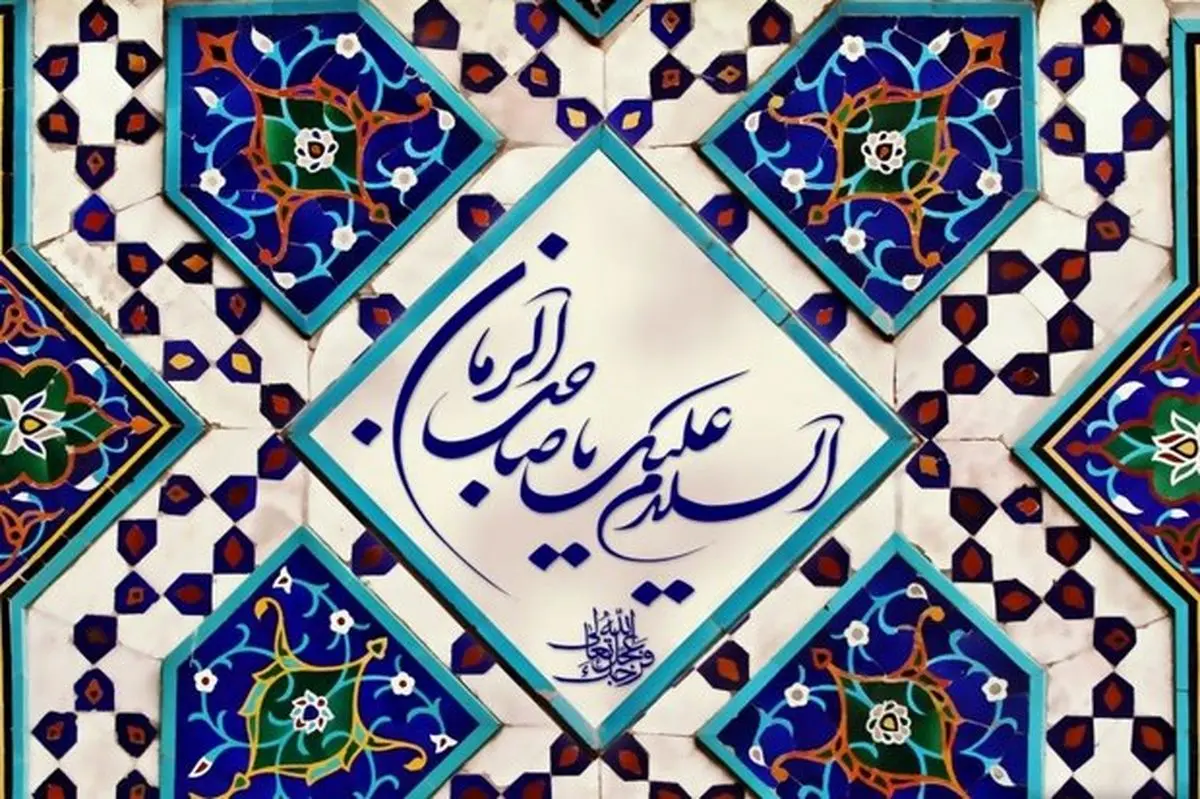 السلام علیک یا صاحب الزمان
عجل الله تعالی فرجک